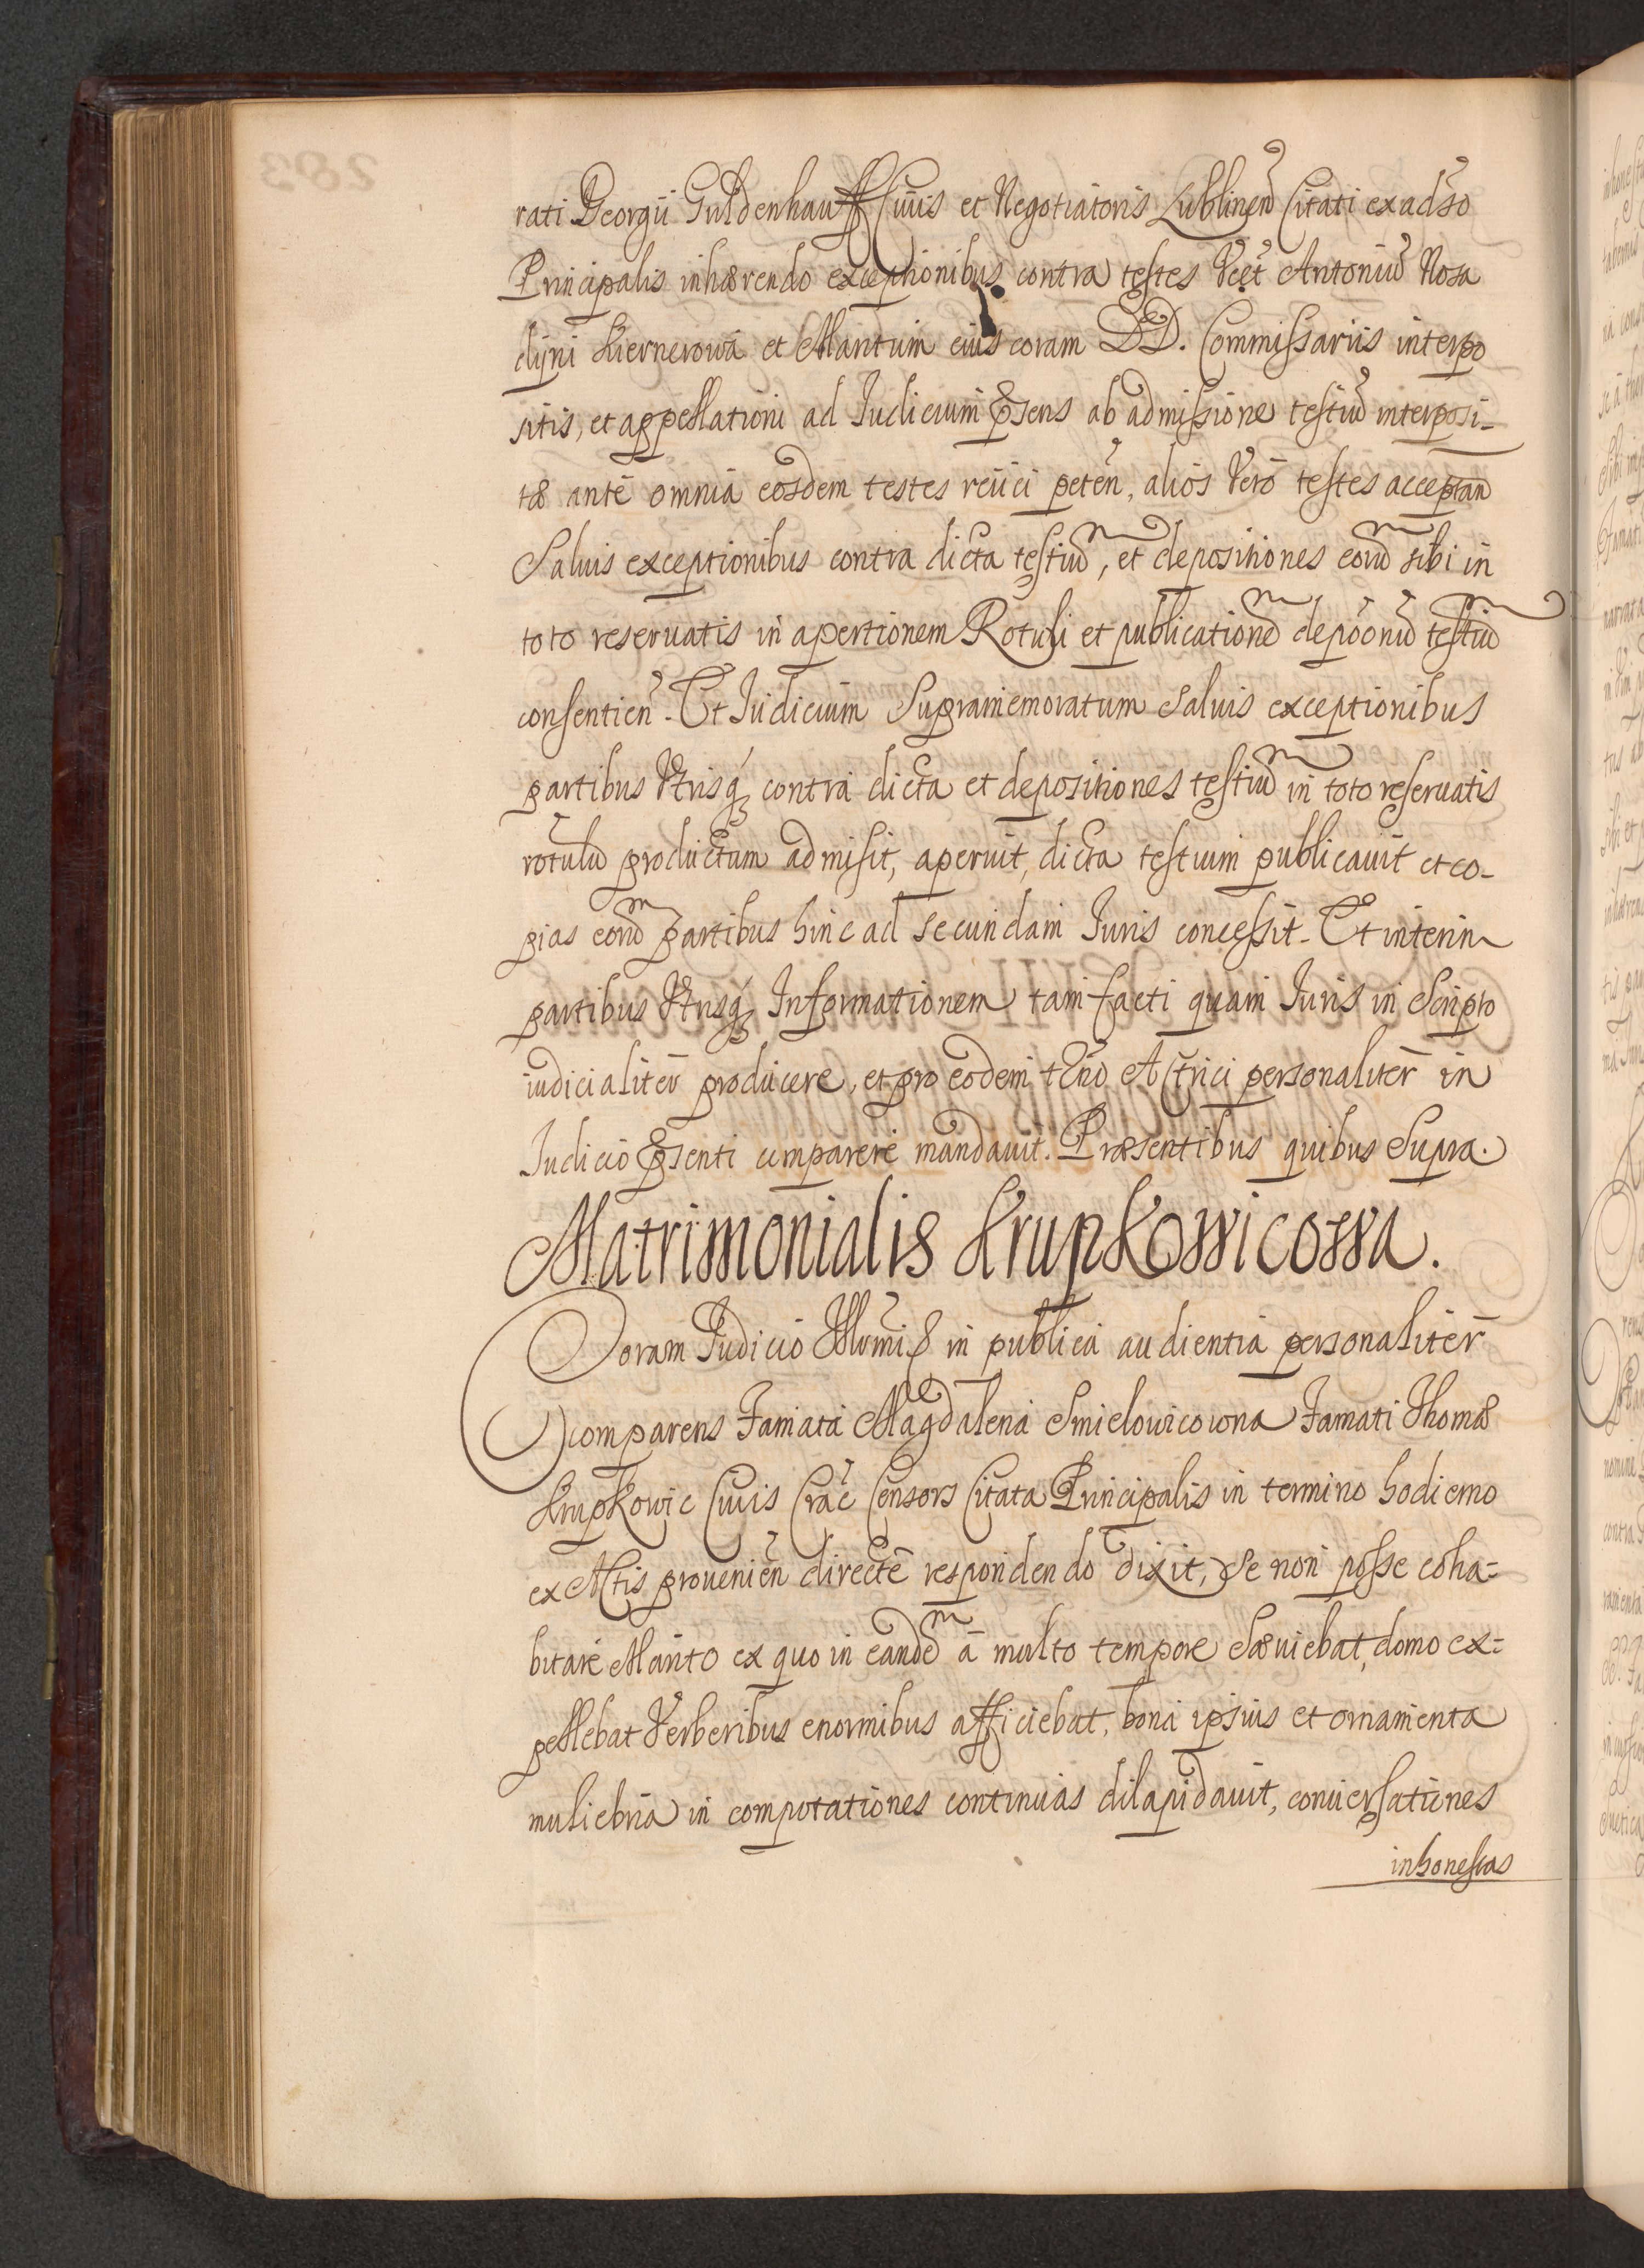 rati Georgii Guldenhauff Ciuis et Negotiatoris Lublineñ Citati ex aduõ
Principalis inhærendo exceptionibus contra testes Vcet Antoniũ Nosa
dijni Kiernerowa et Maritum eius coram DD. Commissariis interpo
sitis, et appellationi ad Iudicium p̃sens ab admissione testiũ interposi-
tæ ante omnia eosdem testes reiici peteñ, alios Vero testes acceptañ
Saluis exceptionibus contra dicta testiũ, et depositiones eorũ sibi in
toto reseruatis in apertionem Rotuli et publicationẽ depõonũ testiũ
consentieñ. Et Iudicium Supramemoratum Saluis exceptionibus
partibus Vtrisq; contra dicta et depositiones testiũ in toto reseruatis
rotulũ productum admisit, aperuit, dicta testium publicauit et co-
pias eorũ partibus hinc ad secundam Iuris concessit. Et interim
partibus Vtrisq; Informationem tam facti quam Iuris in Scripto
iudicialiter producere, et pro eodem tẽno Actrici personaliter in
Iudicio p̃senti comparere mandauit. Præsentibus quibus Supra.
Matrimonialis Krupkowicowa.
Coram Iudicio in publica audientia personaliter
comparens Famata Magdalena Smielowicowna Famati Thomæ
Krupkowic Ciuis Crac̃ Consors Citata Principalis in termino hodierno
ex Actis prouenieñ directe respondendo dixit, Se non posse coha=
bitare Marito ex quo in eandẽ à multo tempore Sæuiebat, domo ex=
pellebat Verberibus enormibus afficiebat, bona ipsius et ornamenta
muliebria in compotationes continuas dilapidauit, conuersationes
inhonestas